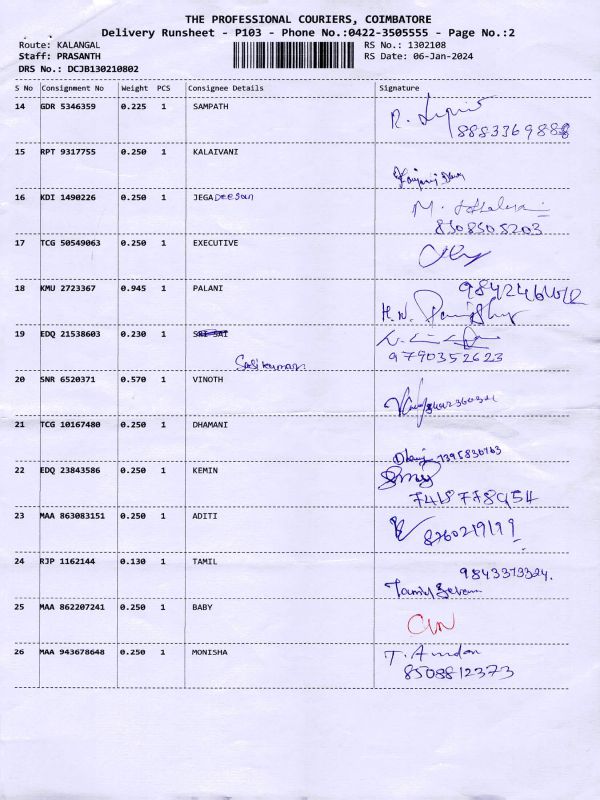 THE PROFESSIONAL COURIERS, COIMBATORE
Delivery Runsheet - P103 - Phone No.:0422-3505555 - Page No.:2
Route: KALANGAL RS No.: 1302108
Staff: PRASANTH RS Date: 06-Jan-2024
DRS No.: DCJB130210802
S No Consignment No Weight PCS Consignee Details Signature
14 GDR 5346359 0.225 1 SAMPATH
15 RPT 9317755 0.250 1 KALAIVANI
16 KDI 1490226 0.250 1 JEGADEESan
8508505203
17 TCG 50549063 0.250 1 EXECUTIVE
18 KMU 2723367 0.945 1 PALANI
19 EDQ 21538603 0.230 1 SRI SAI
Sasikumar
9790352623
20 SNR 6520371 0.570 1 VINOTH
21 TCG 10167480 0.250 1 DHAMANI
22 EDQ 23843586 0.250 1 KEMIN
7418778954
23 MAA 863083151 0.250 1 ADITI
24 RJP 1162144 0.130 1 TAMIL
25 MAA 862207241 0.250 1 BABY
26 MAA 943678648 0.250 1 MONISHA
8508812373